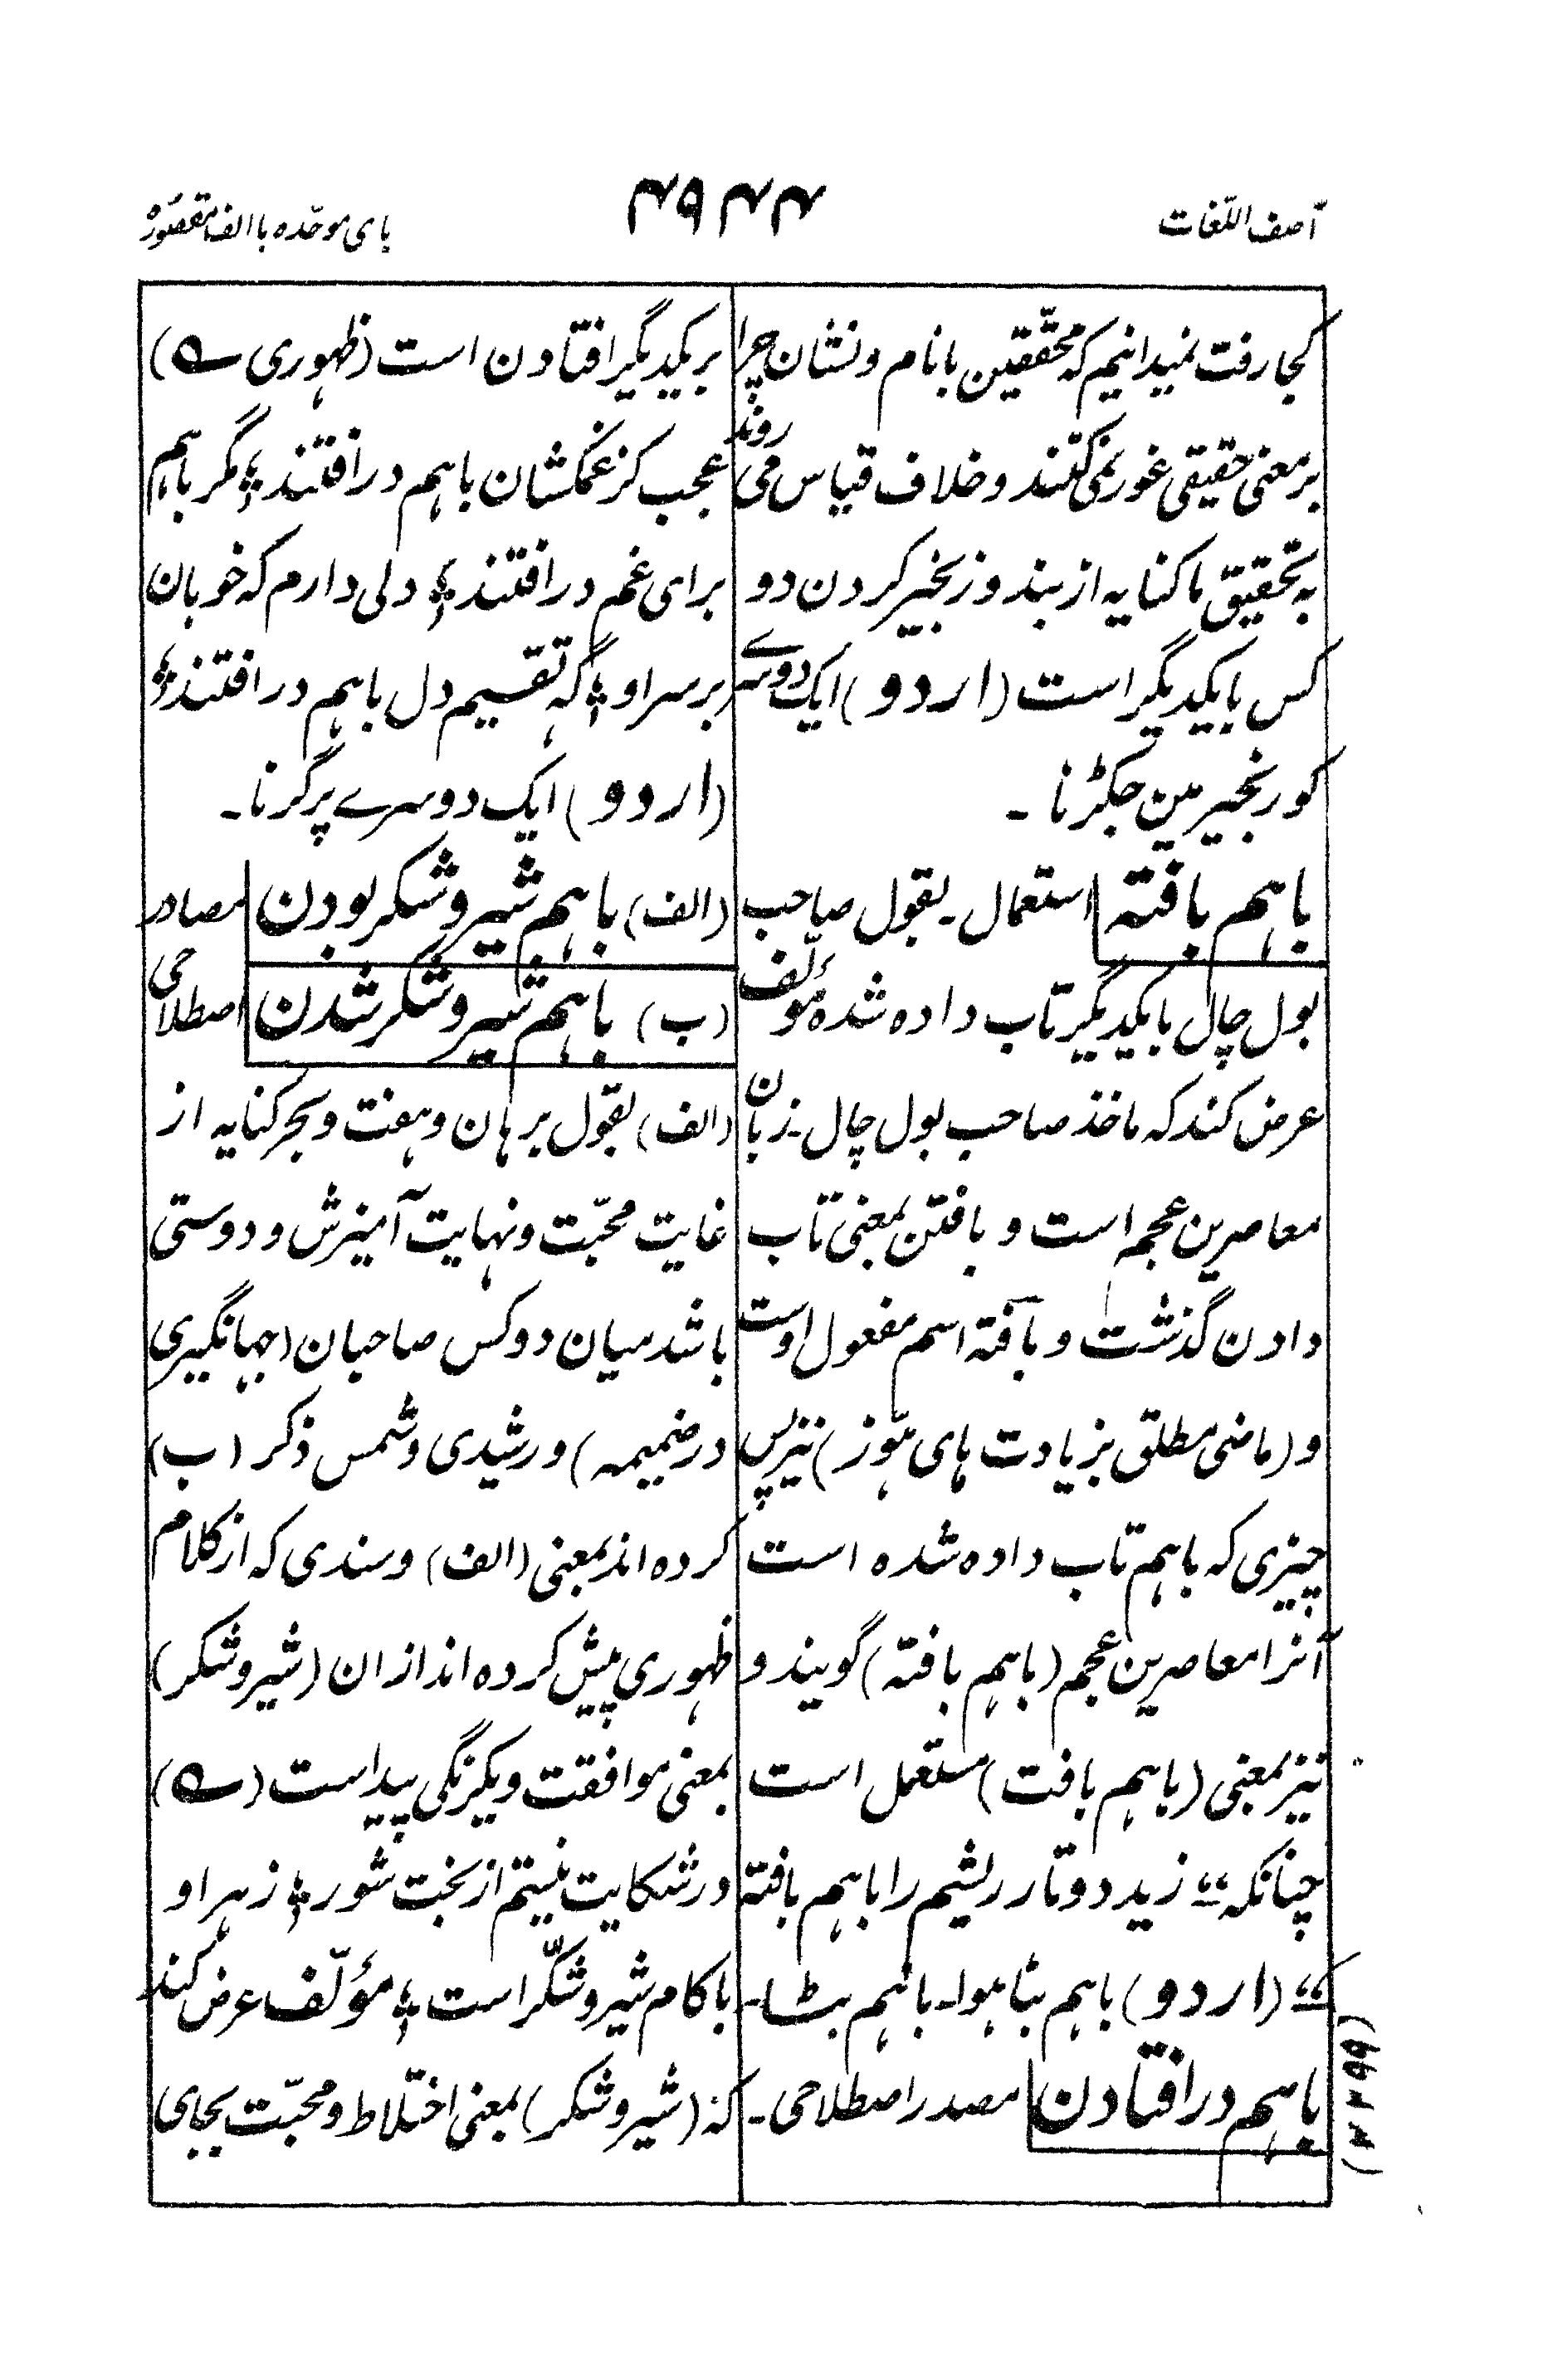 آصف اللغات
۴۹۴۴
بای موحّده با الف مقصوره
کجا رفت نمیدانیم که محقّقین با نام و نشان چرا
بر معنی حقیقی غور نمی کنند و خلاف قیاس می روند
به تحقیق ما کنایه از بند و زنجیر کردن دو
کس با یکدیگر است (اردو) ایک دوسرے
کو زنجیر مین جکڑنا ۔
باہم بافتہ استعمال ۔ بقول صاحب
بول چال با یکدیگر تاب داده شده مؤلّف
عرض کند که ماخذ صاحب بول چال ۔ زبان
معاصرین عجم است و بافتن بمعنی تاب
دادن گذشت و بافته اسم مفعول اوست
و (ماضی مطلق بزیادت ہای ہوّز) نیز پس
چیزی که باہم تاب داده شده است
آنرا معاصرین عجم (باہم بافتہ) گویند و
نیز بمعنی (باہم بافت) مستعمل است
چنانکہ ؛؛ زید دو تار ریشم را باہم بافتہ
؛؛ (اردو) باہم بٹا ہوا ۔ باہم بٹا ۔
باہم در افتادن مصدر اصطلاحی ۔
بر یکدیگر افتادن است (ظہوری ؎)
عجب کز غمکشان باہم در افتند ؛ مگر باہم
برای غم در افتند ؛ دلی دارم کہ خوبان
بر سر او ؛ گہ تقسیم دل باہم در افتند ؛
(اردو) ایک دوسرے پر گرنا ۔
(الف) باہم شیر و شکر بودن مصادر
(ب) باہم شیر و شکر شدن اصطلاحی
(الف) بقول برہان و ہفت و بحر کنایہ از
غایت محبّت و نہایت آمیزش و دوستی
باشد میان دو کس صاحبان (جہانگیری
در ضمیمہ) و رشیدی و شمس ذکر (ب)
کرده اند بمعنی (الف) و سندی که از کلام
ظہوری پیش کرده اند ازان (شیر و شکر)
بمعنی موافقت و یکرنگی پیداست (؎)
در شکایت نیستم از بخت شور ؛ زہر او
با کام شیر و شکّر است ؛ مؤلّف عرض کند
که (شیر و شکر) بمعنی اختلاط و محبّت بجای